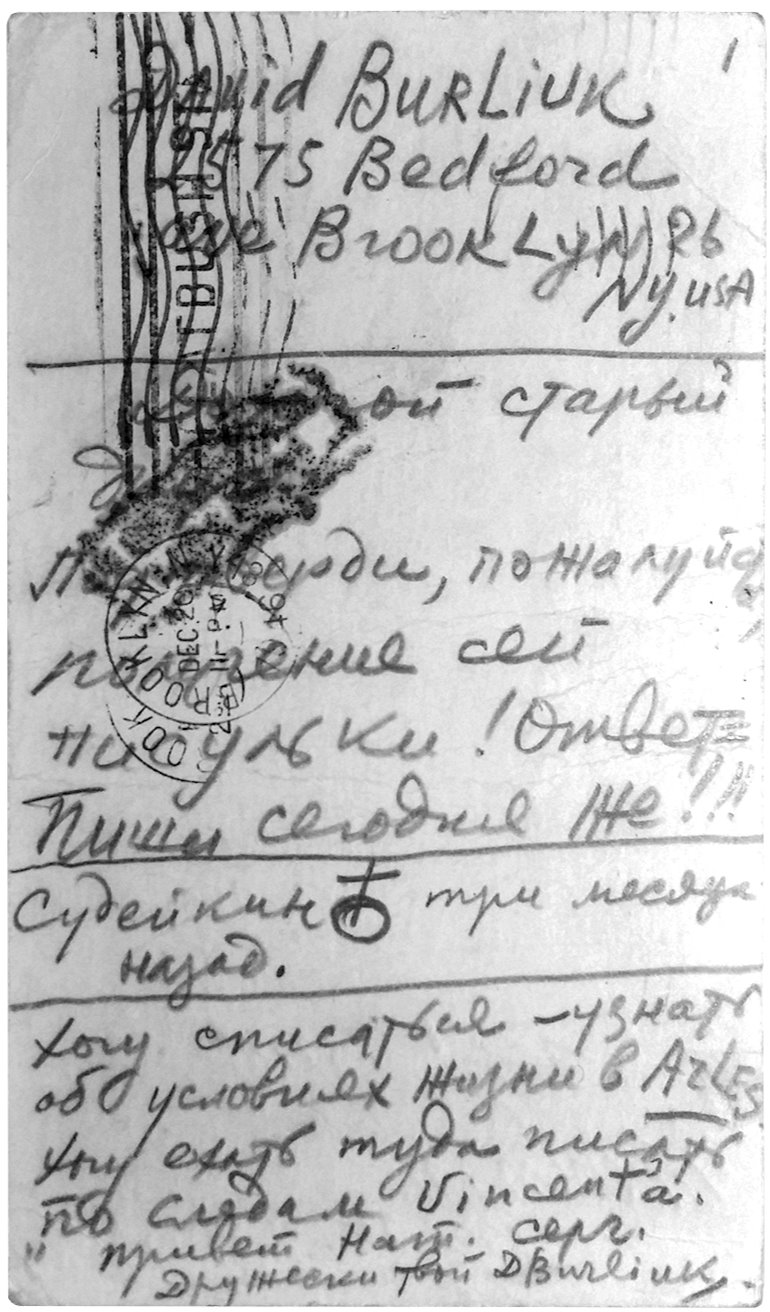 1
David BURLIUK
2575 Bedford
ave BROOKLyN 26
Ny. USA
FLATBUSH STA
старый
Подтверди, пожалуйста,
получение сей
писульки! Ответь
Пиши сегодня же!!!
BROOKLYN N.Y.
DEC 20
1946
Судейкин ♁ три месяца
назад.
Хочу списаться – узнать
об условиях жизни в ARLES.
Хочу ехать туда писать
по следам Vincent'a.
" привет Нат. серг.
Дружески твой DBurliuk.